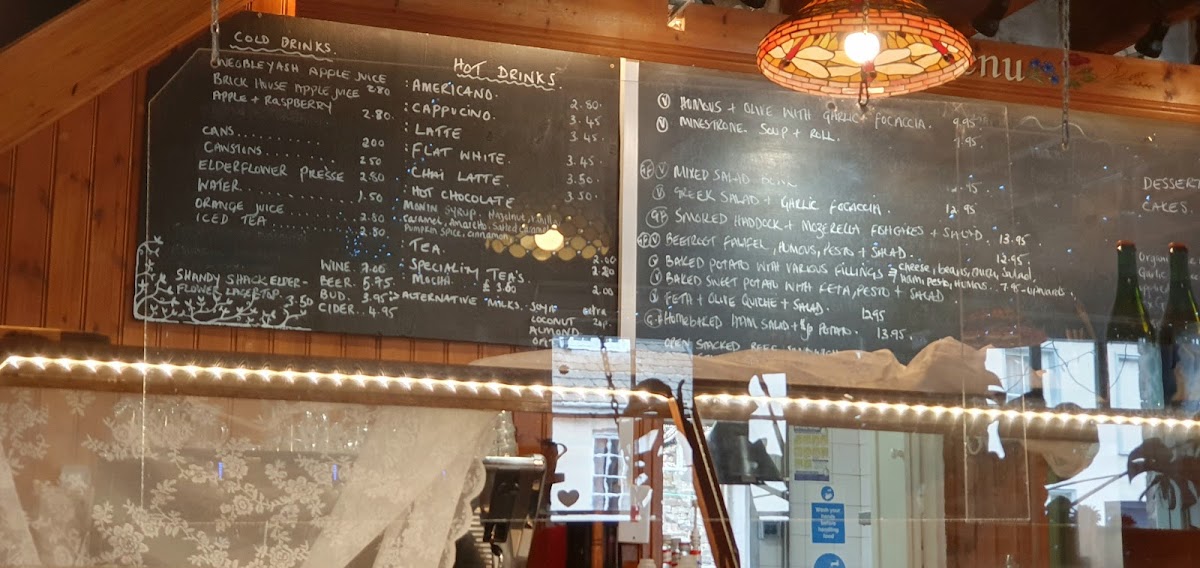 COLD DRINKS.
APPLE JUICE
BRICK HOUSE APPLE JUICE 2.80
APPLE + RASPBERRY
2.80.
CANS.......... 200
CANSTONS.......... 250
ELDERFLOWER PRESSE 2.80
WATER.......... 1.50
ORANGE JUICE.......... 2.80
ICED TEA.......... 2.80
SHANDY SHACK ELDER-
FLOWER LAGERTOP. 3.50
WINE. 7.00
BEER. 5.75.
BUD. 3.95
CIDER.. 4.95
HOT DRINKS
: AMERICANO. 2.80.
: CAPPUCINO. 3.45
: LATTE 3.45.
: FLAT WHITE. 3.45
: CHAI LATTE. 3.50.
: HOT CHOCOLATE 3.50.
MONIN SYRUP. Hazelnut, Vanilla
Caramel, Amaretto, Salted caramel
Pumpkin spice, cinnamon
: TEA. 2.00
: SPECIALITY TEA'S 2.80
MOCHA. £3.00 2.00
: ALTERNATIVE MILKS. SOYA extra
COCONUT
ALMOND
OAT
enu
V HUMOUS + OLIVE WITH GARLIC FOCACCIA. 9.95
V MINESTRONE SOUP + ROLL. 7.95
GF V MIXED SALAD
V GREEK SALAD + GARLIC FOCACCIA. 12.95
GF SMOKED HADDOCK + MOZERELLA FISHCAKES + SALAD. 13.95
GF V BEETROOT FALAFEL, HUMOUS, PESTO + SALAD. 12.95
BAKED POTATO WITH VARIOUS FILLINGS cheese, beans, tuna, salad,
ham, pesto, humous. 7.95 - upwards
V BAKED SWEET POTATO WITH FETA, PESTO + SALAD
V FETA + OLIVE QUICHE + SALAD. 12.95
GF HOMEBAKED HAM SALAD + POTATO. 13.95
OPEN SMOKED BEEF SANDWICH
DESSERT
CAKES
Wash your
hands
before
handling
food